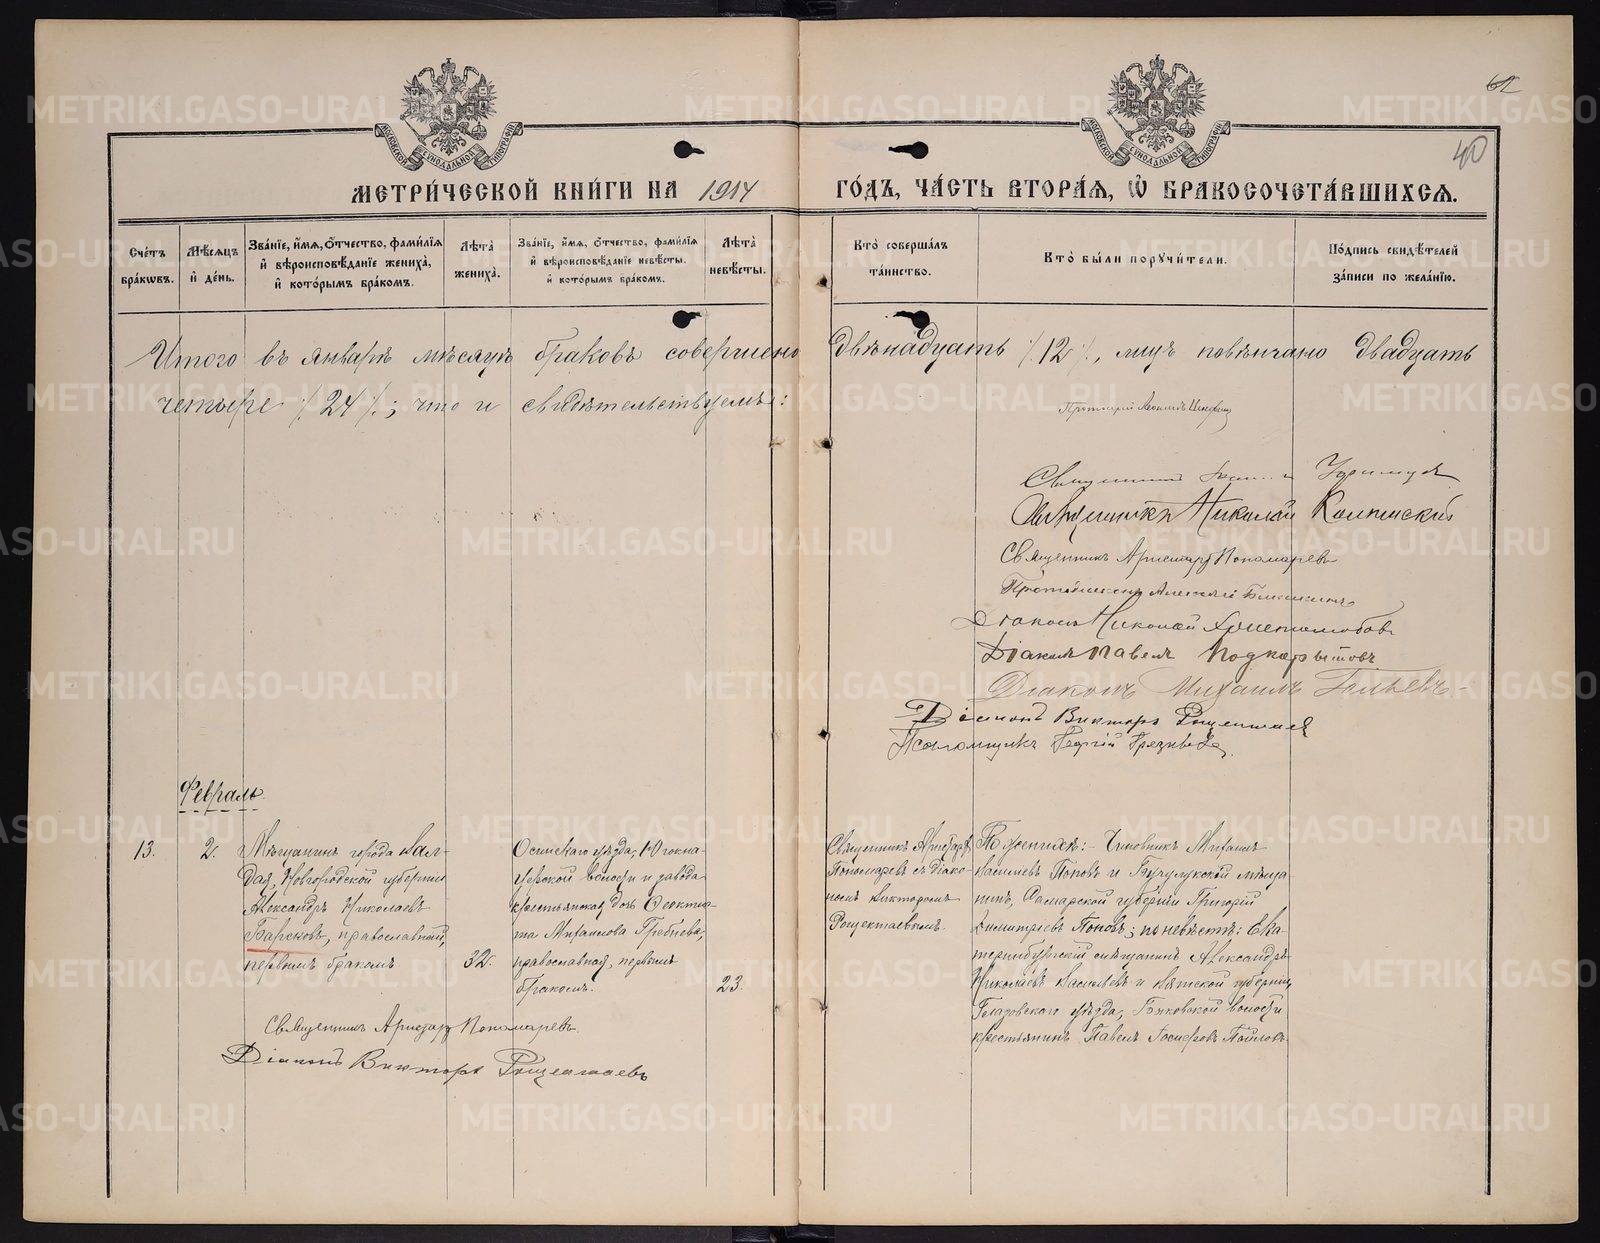 62
40
МЕТРИЧЕСКОЙ КНИГИ НА 1914 ГОДЪ, ЧАСТЬ ВТОРАЯ, Ѡ БРАКОСОЧЕТАВШИХСЯ.
МОСКОВСКОЙ СУНОДАЛЬНОЙ ТИПОГРАФІИ
МОСКОВСКОЙ СУНОДАЛЬНОЙ ТИПОГРАФІИ
Счетъ браковъ.
Мѣсяцъ и день.
Званіе, имя, отчество, фамилія и вѣроисповѣданіе жениха, и которымъ бракомъ.
Лѣта жениха.
Званіе, имя, отчество, фамилія и вѣроисповѣданіе невѣсты. и которымъ бракомъ.
Лѣта невѣсты.
Кто совершалъ таинство.
Кто были поручители.
Подпись свидѣтелей записи по желанію.
Итого въ январѣ мѣсяцѣ браковъ совершено двѣнадцать /12/, лицъ повѣнчано двадцать
четыре /24/; что и свидѣтельствуемъ:
Протоіерей
Священникъ
Священникъ Николай
Священникъ Аристархъ Пономаревъ
Протодіаконъ Алексѣй
Діаконъ Николай Христолюбовъ
Діаконъ Павелъ Подкорытовъ
Діаконъ Михаилъ
Діаконъ Викторъ Рощектаевъ
Псаломщикъ Георгій
Февраль.
13.
2.
Мѣщанинъ города Вал-
дая, Новгородской губерніи
Александръ Николаевъ
Барсковъ, православный,
первымъ бракомъ
32.
Осинскаго уѣзда, Югокна-
уфской волости и завода
крестьянская дочь Ѳеокти-
ста Михаилова Гребнева,
православная, первымъ
бракомъ.
23.
Священникъ Аристархъ
Пономаревъ съ діако-
номъ Викторомъ
Рощектаевымъ.
По женихѣ: Чиновникъ Михаилъ
Васильевъ Поповъ и Бузулукскій мѣща
нинъ, Самарской губерніи Григорій
Димитріевъ Поповъ; по невѣстѣ: Ека-
теринбургскій мѣщанинъ Александръ
Николаевъ Васильевъ и Вятской губерніи,
Глазовскаго уѣзда, волости
крестьянинъ Павелъ
Священникъ Аристархъ Пономаревъ.
Діаконъ Викторъ Рощектаевъ
METRIKI.GASO-URAL.RU